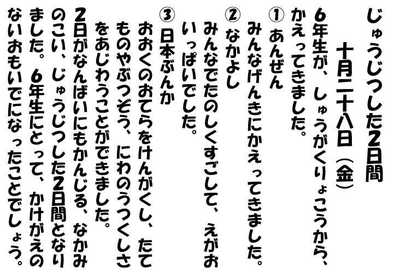 じゅうじつした2日間
十月二十八日（金）
6年生が、しゅうがくりょこうから、
かえってきました。
①あんぜん
みんなげんきにかえってきました。
②なかよし
みんなでたのしくすごして、えがお
いっぱいでした。
③日本ぶんか
おおくのおてらをけんがくし、たて
ものやぶつぞう、にわのうつくしさ
をあじわうことができました。
2日がなんばいにもかんじる、なかみ
のこい、じゅうじつした2日間となり
ました。6年生にとって、かけがえの
ないおもいでになったことでしょう。